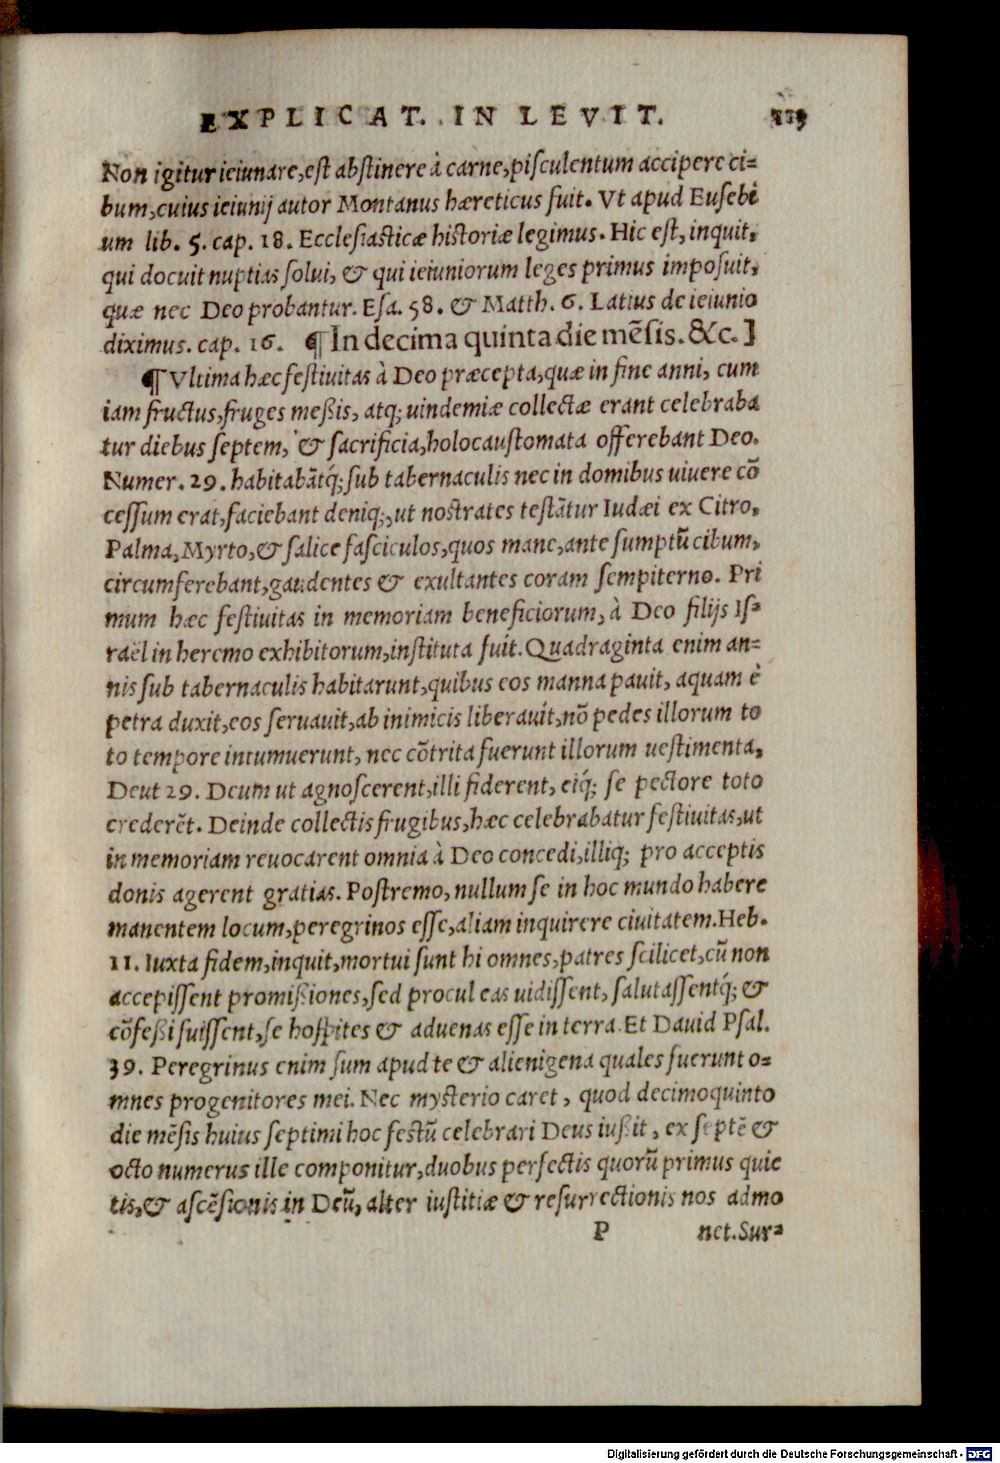 EXPLICAT. IN LEVIT. 113
Non igitur ieiunare, est abstinere à carne, pisculentum accipere ci=
bum, cuius ieiunij autor Montanus hæreticus fuit. Vt apud Eusebi
um lib. 5. cap. 18. Ecclesiasticæ historiæ legimus. Hic est, inquit,
qui docuit nuptias solui, & qui ieiuniorum leges primus imposuit,
quæ nec Deo probantur. Esa. 58. & Matth. 6. Latius de ieiunio
diximus. cap. 16. ¶ In decima quinta die mēsis. &c. ]
¶ Vltima hæc festiuitas à Deo præcepta, quæ in fine anni, cum
iam fructus, fruges meßis, atq; uindemiæ collectæ erant celebraba
tur diebus septem, & sacrificia, holocaustomata offerebant Deo.
Numer. 29. habitabātq́; sub tabernaculis nec in domibus uiuere cō
cessum erat, faciebant deniq;, ut nostrates testātur Iudæi ex Citro,
Palma, Myrto, & salice fasciculos, quos mane, ante sumptū cibum,
circumferebant, gaudentes & exultantes coram sempiterno. Pri
mum hæc festiuitas in memoriam beneficiorum, à Deo filijs Is=
raël in heremo exhibitorum, instituta fuit. Quadraginta enim an=
nis sub tabernaculis habitarunt, quibus eos manna pauit, aquam è
petra duxit, eos seruauit, ab inimicis liberauit, nō pedes illorum to
to tempore intumuerunt, nec cōtrita fuerunt illorum uestimenta,
Deut 29. Deum ut agnoscerent, illi fiderent, eiq́; se pectore toto
crederēt. Deinde collectis frugibus, hæc celebrabatur festiuitas, ut
in memoriam reuocarent omnia à Deo concedi, illiq; pro acceptis
donis agerent gratias. Postremo, nullum se in hoc mundo habere
manentem locum, peregrinos esse, aliam inquirere ciuitatem. Heb.
11. Iuxta fidem, inquit, mortui sunt hi omnes, patres scilicet, cū non
accepissent promißiones, sed procul eas uidissent, salutassentq́; &
cōfeßi fuissent, se hospites & aduenas esse in terra. Et Dauid Psal.
39. Peregrinus enim sum apud te & alienigena quales fuerunt o=
mnes progenitores mei. Nec mysterio caret, quod decimoquinto
die mēsis huius septimi hoc festū celebrari Deus iußit, ex septē &
octo numerus ille componitur, duobus perfectis quorū primus quie
tis, & ascēsionis in Deū, alter iustitiæ & resurrectionis nos admo
P net. Sur=
Digitalisierung gefördert durch die Deutsche Forschungsgemeinschaft - DFG